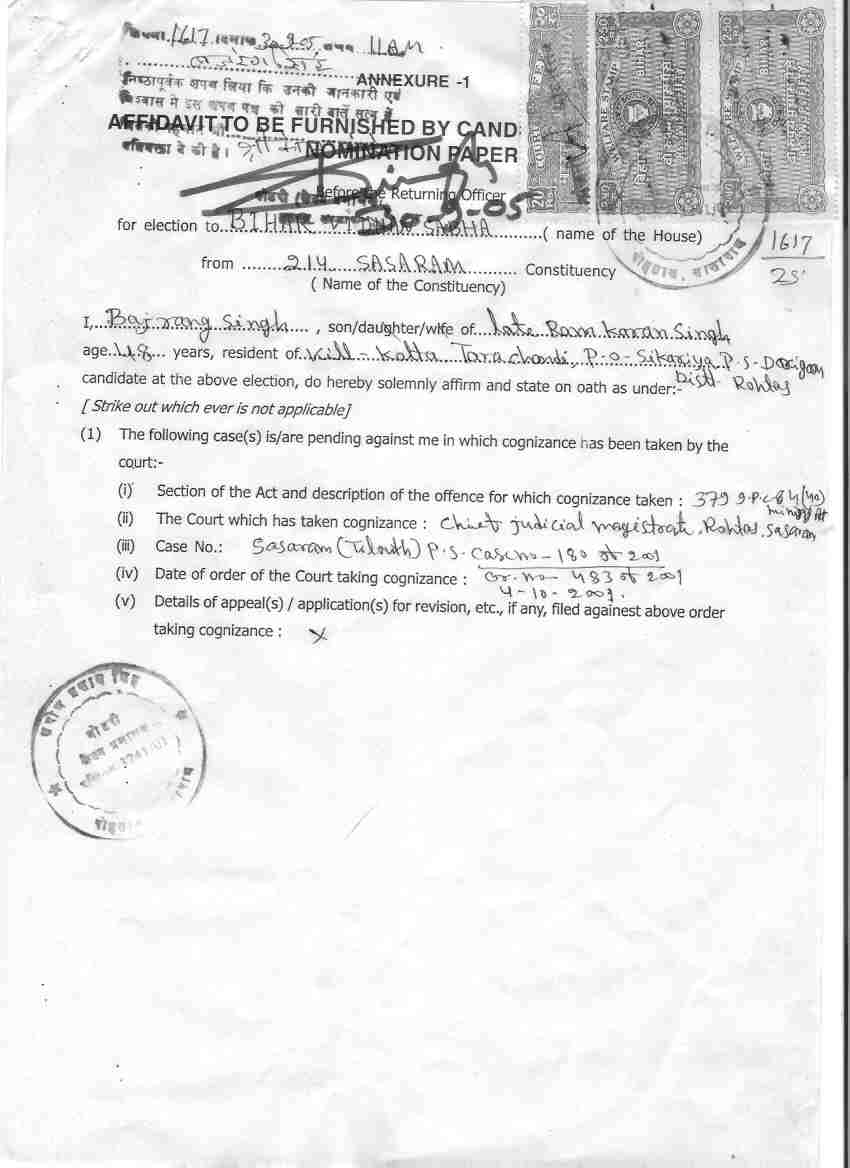 1617 दिनांक 30.9.05 समय 11 AM
ANNEXURE -1
निष्ठापूर्वक शपथ लिया कि उनकी जानकारी एवं
विश्वास मे इस शपथ पत्र की सारी बातें सत्य है
AFFIDAVIT TO BE FURNISHED BY CAND
NOMINATION PAPER
Before the Returning Officer
30-9-05
for election to BIHAR VIDHAN SABHA ( name of the House)
1617
from 214 SASARAM Constituency
25
( Name of the Constituency)
I, Bajrang Singh , son/daughter/wife of late Ram Karan Singh
age 48 years, resident of Vill - Kotta Tarachandi, P-O- Sikariya P.S- Darigaon
candidate at the above election, do hereby solemnly affirm and state on oath as under:- Distt- Rohtas
[ Strike out which ever is not applicable]
(1) The following case(s) is/are pending against me in which cognizance has been taken by the
court:-
(i) Section of the Act and description of the offence for which cognizance taken : 379
(ii) The Court which has taken cognizance : Chief judicial magistrate, Rohtas, Sasaram
(iii) Case No.: Sasaram (Tilouth) P.S. Case no - 180 of 2001
(iv) Date of order of the Court taking cognizance : Gr. no - 483 of 2001
4-10-2001.
(v) Details of appeal(s) / application(s) for revision, etc., if any, filed againest above order
taking cognizance : X
नोटरी
COURT FEE
WELFARE STAMP
BIHAR